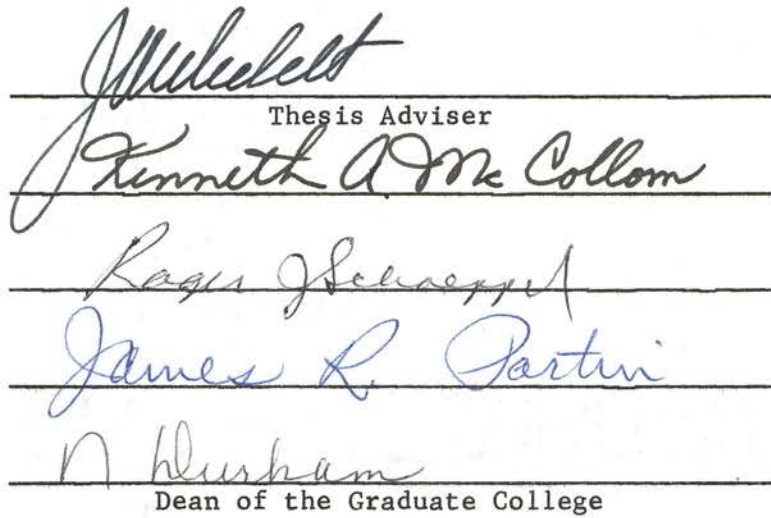 Thesis Adviser
Kenneth A Mc Collom
Roger J Schoeppel
James R. Partin
N Durham
Dean of the Graduate College